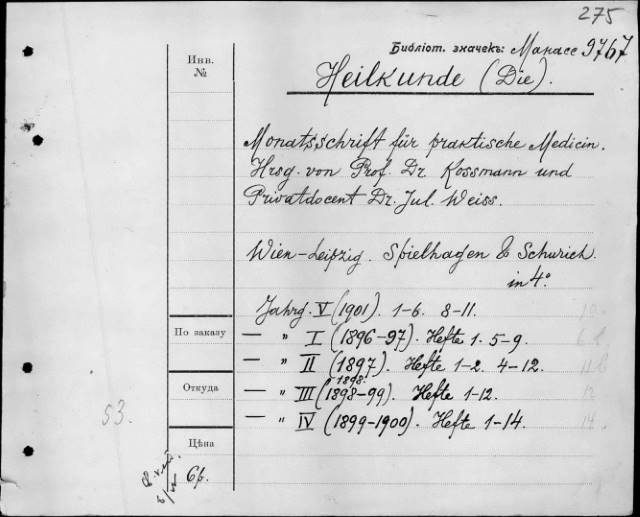 275
Библіот. значекъ: Манассе 9767
Heilkunde (Die).
Инв. №
Monatsschrift für praktische Medicin.
Hrsg. von Prof. Dr. Kossmann und
Privatdocent Dr. Jul. Weiss.
Wien-Leipzig. Spielhagen & Schurich.
in 4°.
Jahrg. V (1901). 1-6. 8-11.
По заказу
— " I (1896-97). Hefte 1. 5-9.
— " II (1897). Hefte 1-2. 4-12.
1898.
Откуда
— " III (1898-99). Hefte 1-12.
53.
— " IV (1899-1900). Hefte 1-14.
Цѣна
6р.